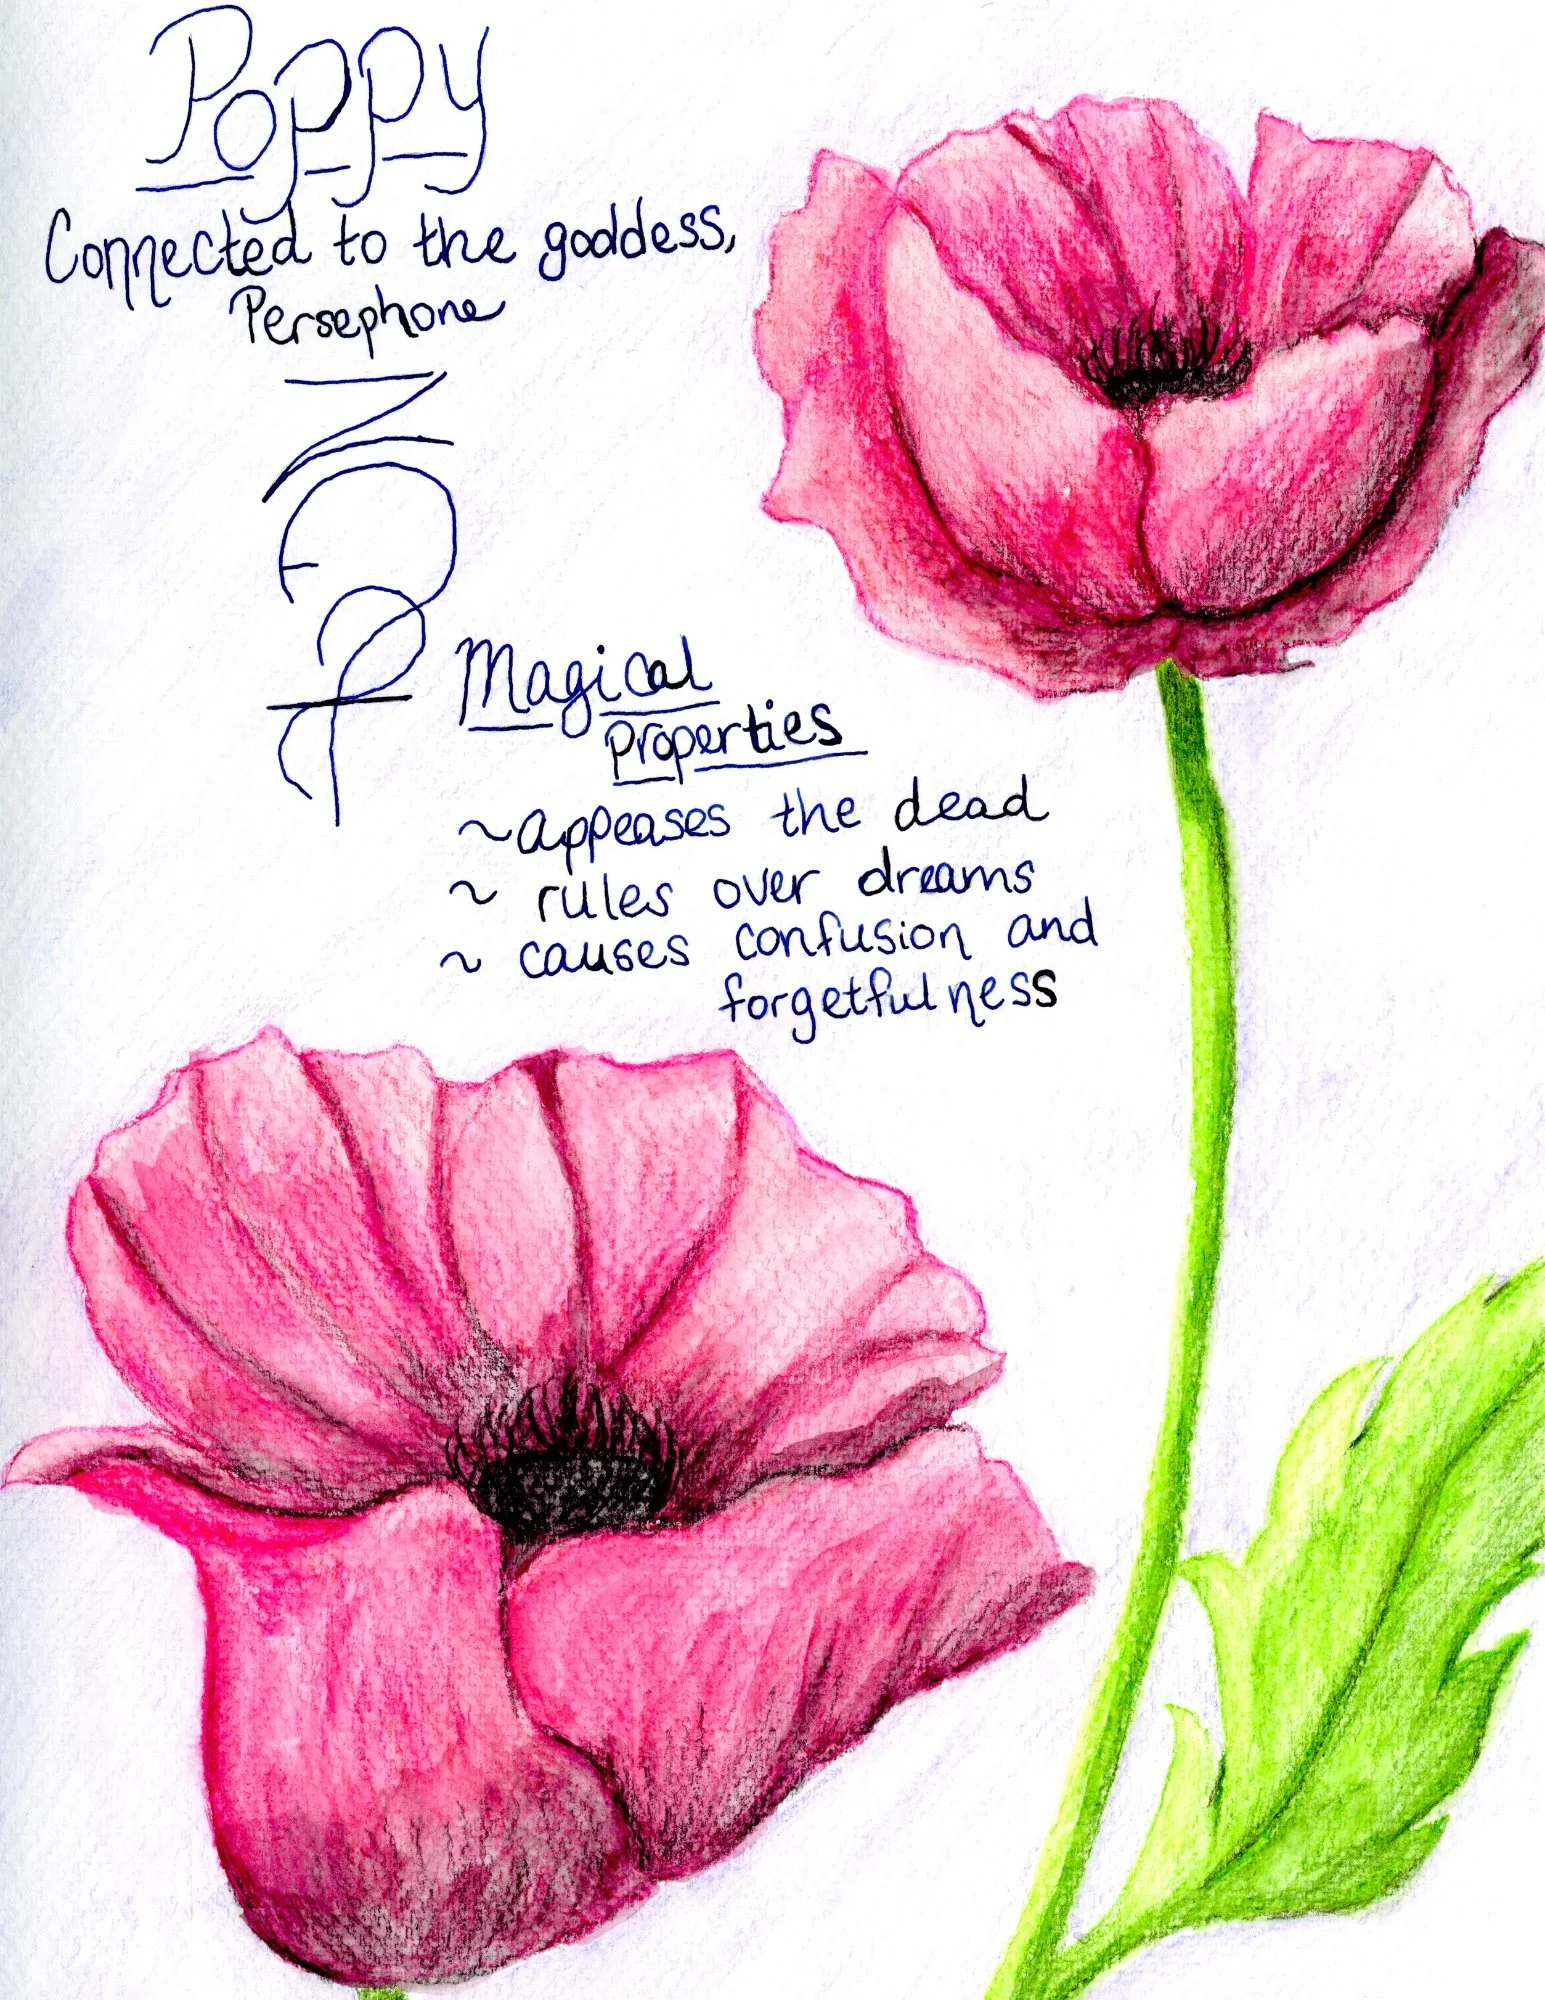 Poppy
Connected to the goddess,
Persephone
Magical
properties
~appeases the dead
~ rules over dreams
~ causes confusion and
forgetfulness